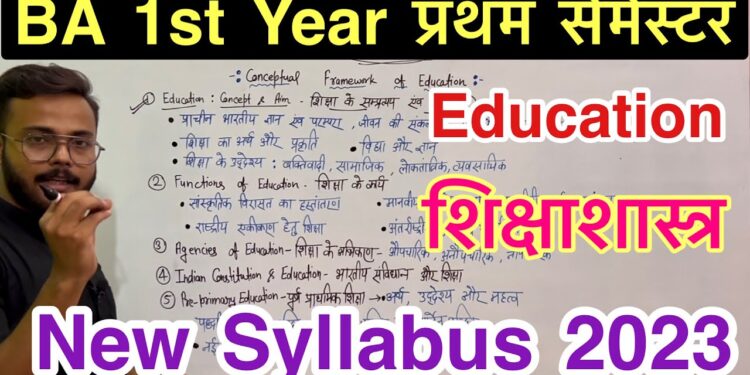 BA 1st Year प्रथम सेमेस्टर
-: Conceptual Framework of Education :-
① Education : Concept & Aim - शिक्षा के सम्प्रत्यय एंव
Education
• प्राचीन भारतीय ज्ञान एंव परम्परा, जीवन की
• शिक्षा का अर्थ और प्रकृति • विद्या और ज्ञान
• शिक्षा के उद्देश्य : व्यक्तिवादी, सामाजिक लोकतांत्रिक, व्यवसायिक
② Functions of Education - शिक्षा के कार्य
शिक्षाशास्त्र
• सांस्कृतिक विरासत का हस्तांतरण
• राष्ट्रीय एकीकरण हेतु शिक्षा
③ Agencies of Education - शिक्षा के अभिकरण - औपचारिक,
④ Indian Constitution & Education - भारतीय संविधान और शिक्षा
⑤ Pre-primary Education - पूर्व प्राथमिक शिक्षा → अर्थ, उद्देश्य और महत्व
New Syllabus 2023